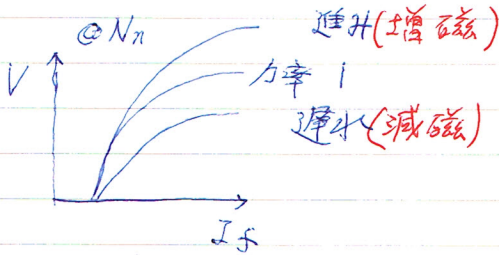 @Nn
V
進み(増磁)
力率 1
遅れ(減磁)
If